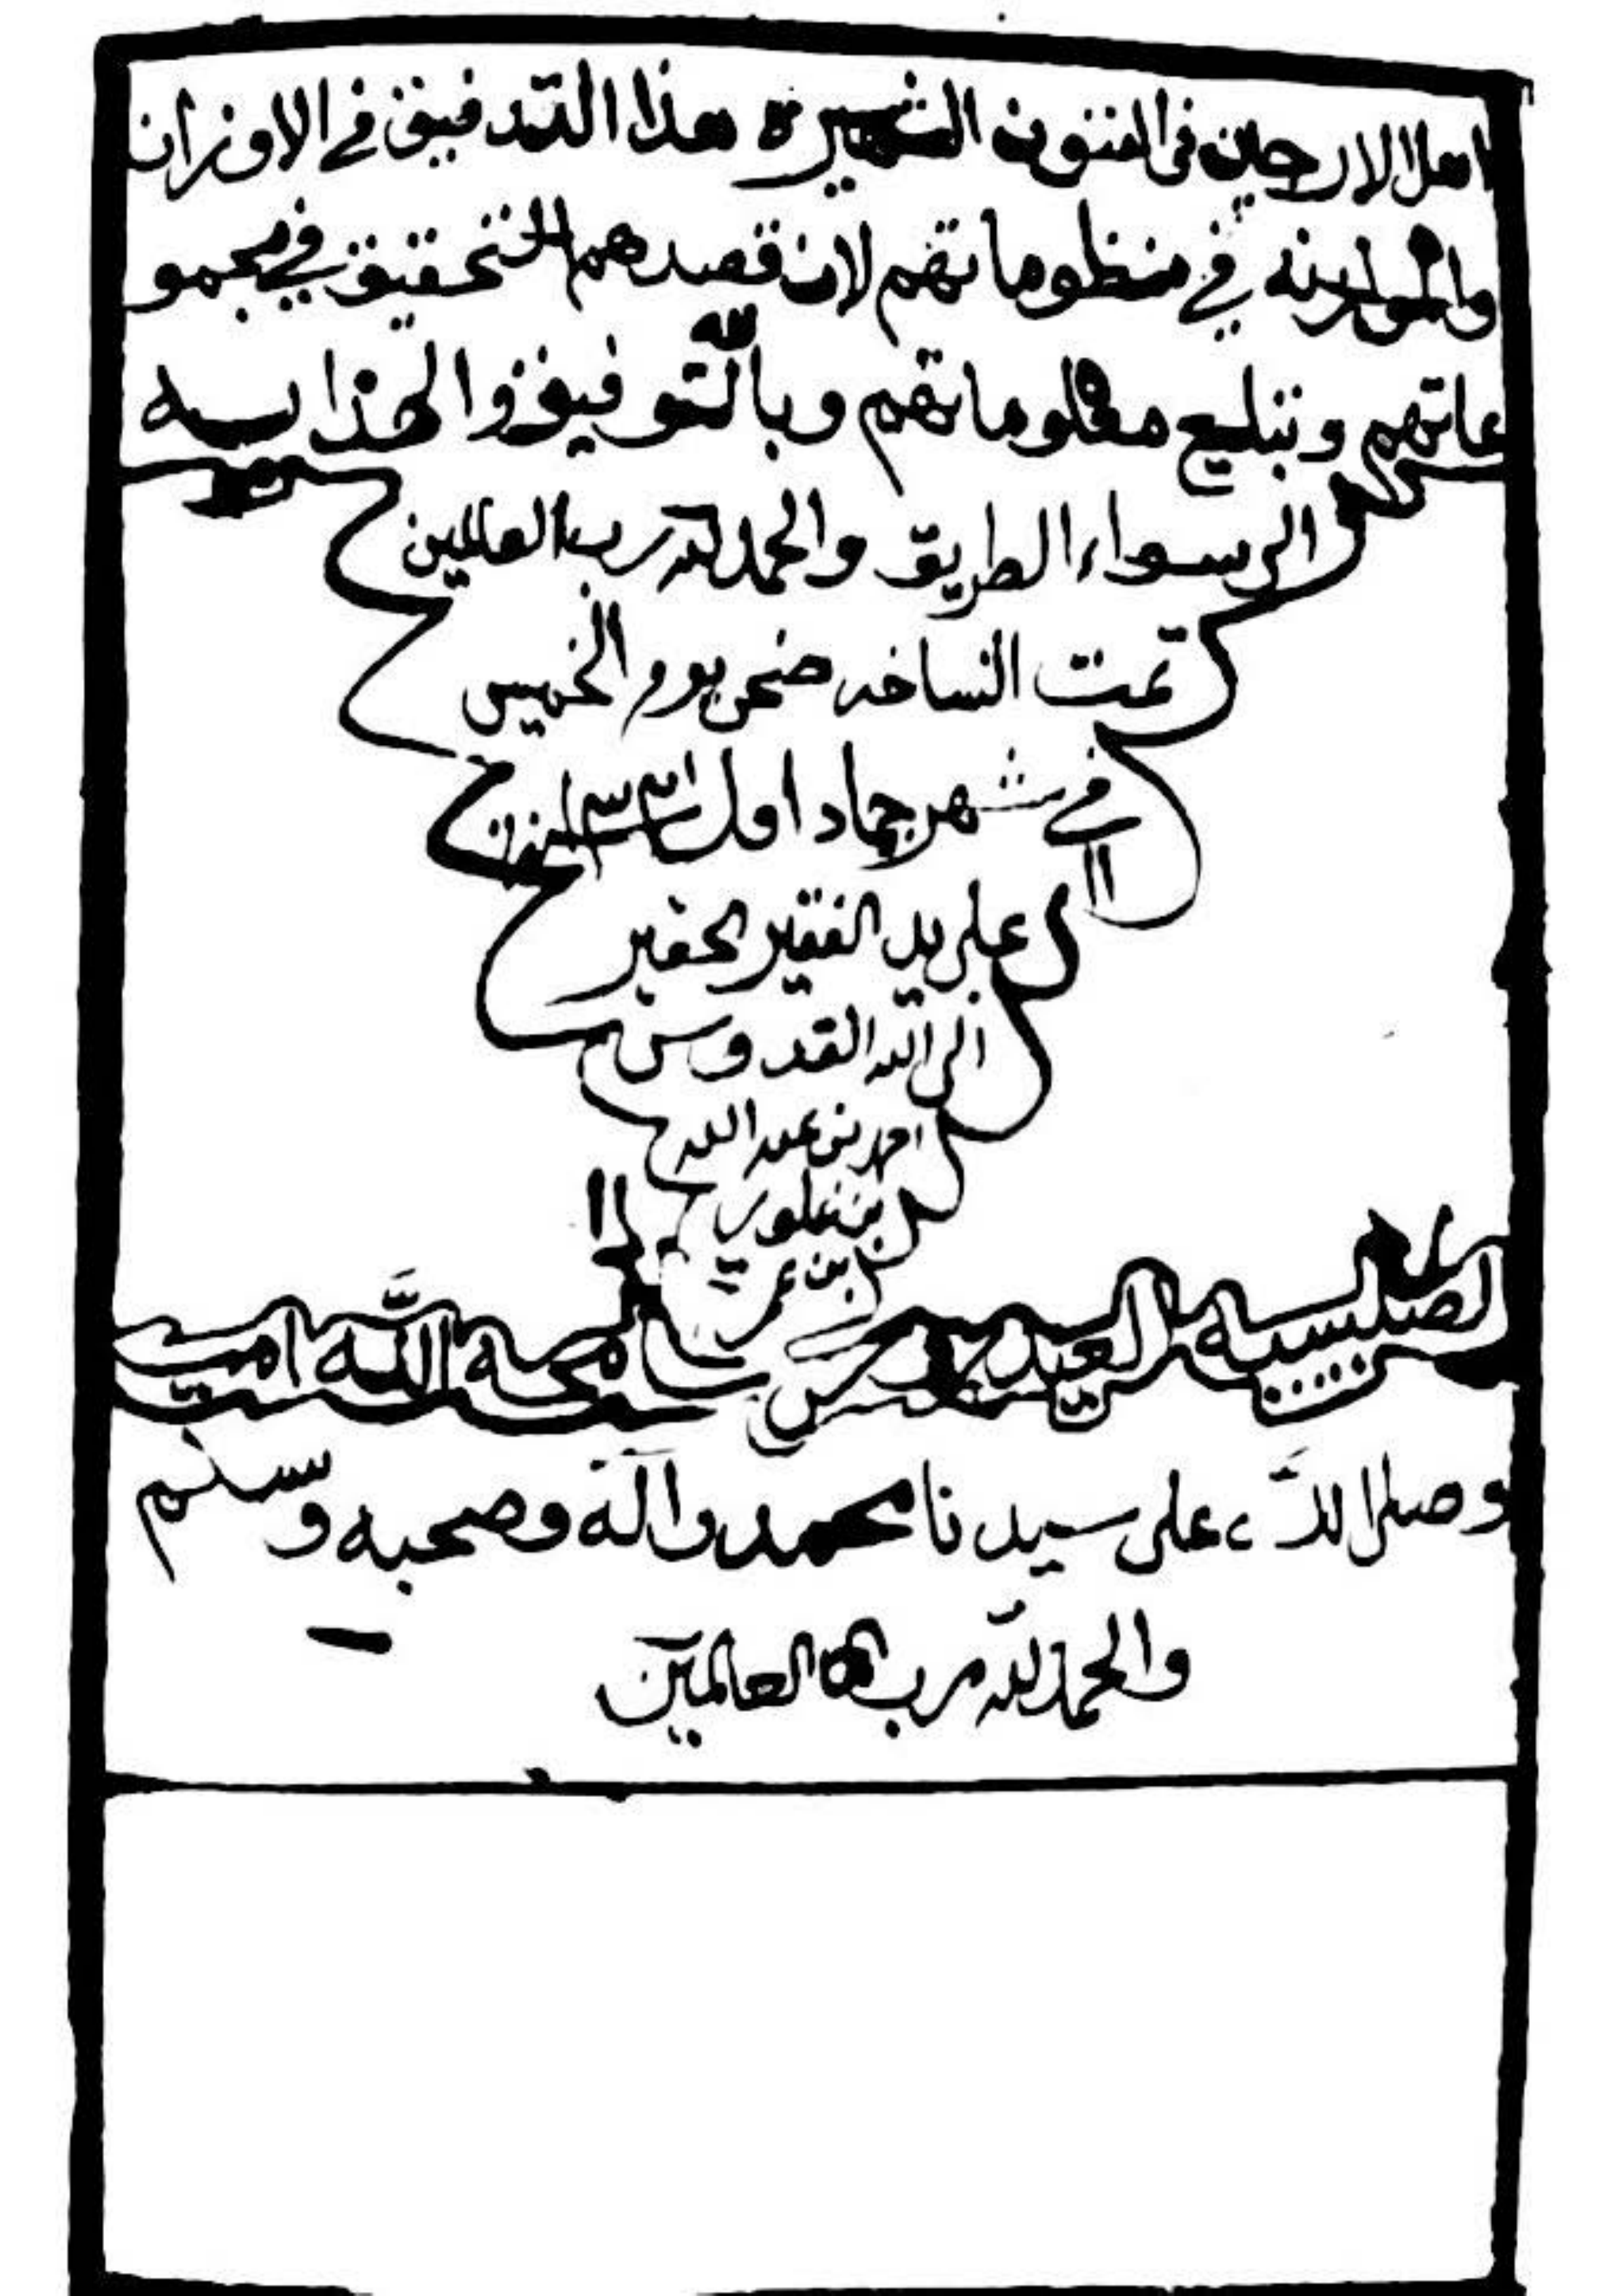 اهل الاراجيز في الفنون الشهيرة هذا التدقيق في الاوزان
والموازنه في منظوماتهم لان قصدهم التحقيق في مجمو
عاتهم وتبليغ معلوماتهم وبالله التوفيق والهذايه
الى سواء الطريق والحمد لله رب العالمين
تمت النساخه ضحى يوم الخميس
في شهر جماد اول
على يد الفقير الحقير
الى الله القدوس
احمد بن عبد الله
بن علوي
بن
العيدروس سامحه الله امين
وصلى الله على سيدنا محمد واله وصحبه وسلم
والحمد لله رب العالمين